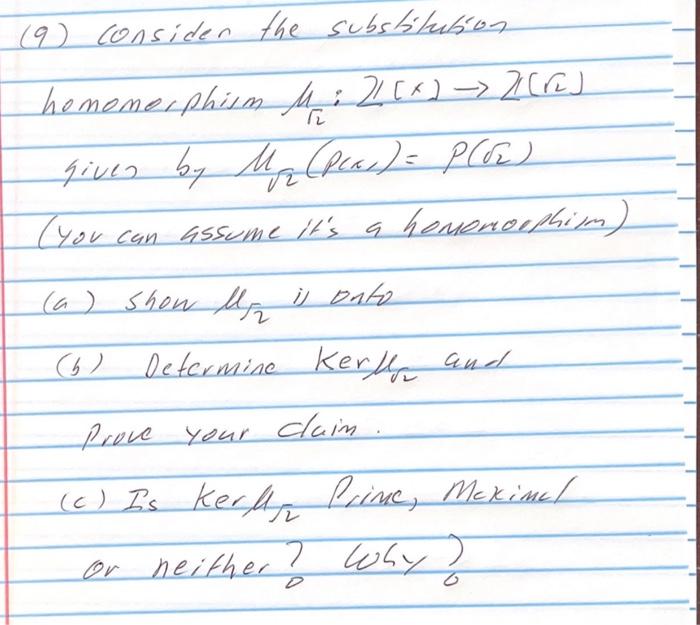 (9) Consider the substitution
homomorphism μ_√2 : ℤ[x] → ℤ[√2]
given by μ_√2 (p(x)) = P(√2)
(you can assume it's a homomorphism)
(a) show μ_√2 is onto
(b) Determine Ker μ_√2 and
Prove your claim.
(c) Is Ker μ_√2 Prime, Maximal
or neither? Why?